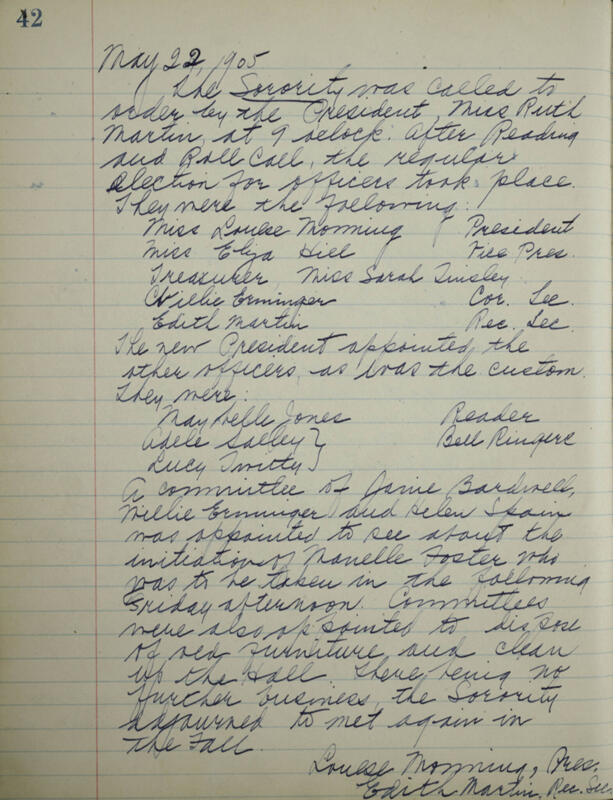 42
May 22, 1905
The Sorority was called to
order by the President, Miss Ruth
Martin, at 9 oclock. After Reading
and Roll Call, the regular
election for officers took place.
They were the following:
Miss Louese Monning President
Miss Eliza Hill Vice Pres.
Treasurer, Miss Sarah Tinsley
Willie Erminger Cor. Sec.
Edith Martin Rec. Sec.
The new President appointed the
other officers, as was the custom.
They were:
May Belle Jones Reader
Adele Salley } Bell Ringers
Lucy Twitty }
A committee of Janie Bardwell,
Willie Erminger and Helen Spain
was appointed to see about the
initiation of Nanelle Foster who
was to be taken in the following
Friday afternoon. Committees
were also appointed to dispose
of old furniture and clean
up the Hall. There being no
further business, the Sorority
adjourned to met again in
the Fall.
Louese Monning, Pres.
Edith Martin, Rec. Sec.